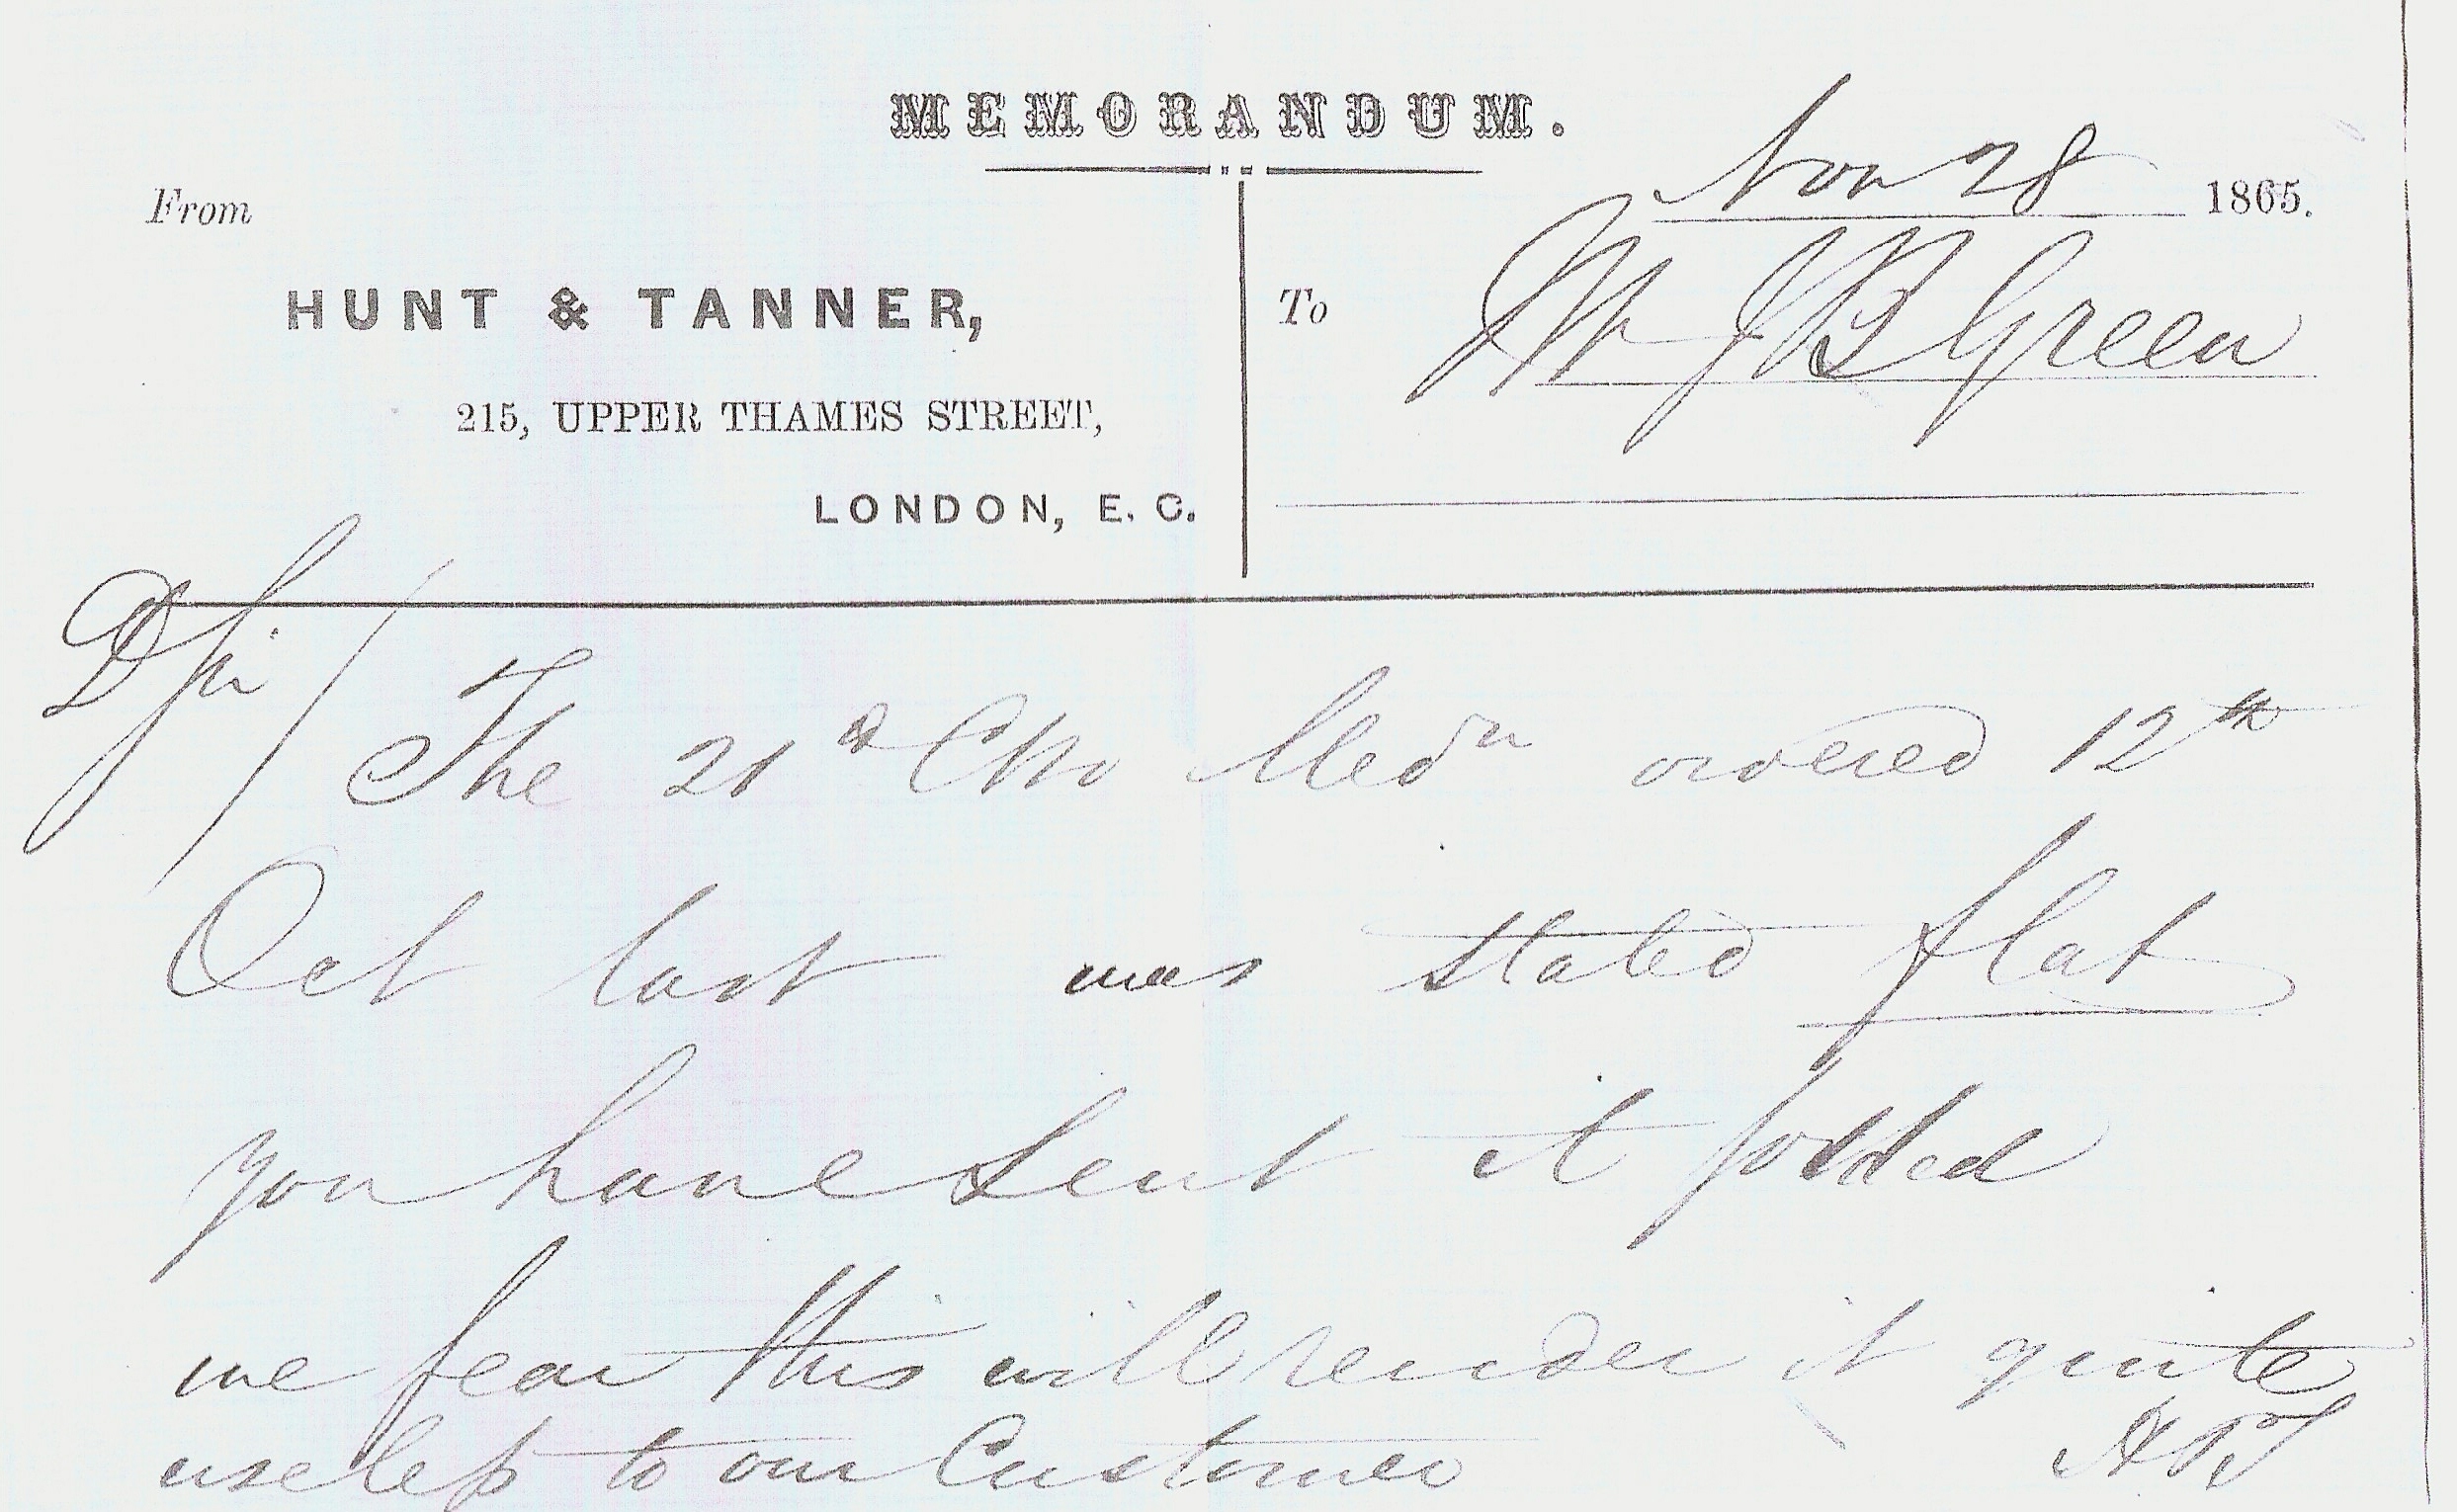 MEMORANDUM.
Nov 28 1865.
From
HUNT & TANNER,
To Mr J B Green
215, UPPER THAMES STREET,
LONDON, E. C.
D Sir/
The 21 Medm ordered 12th
Oct last was stated flat
you have sent it folded
we fear this will render it quite
useless to our Customer
H & T